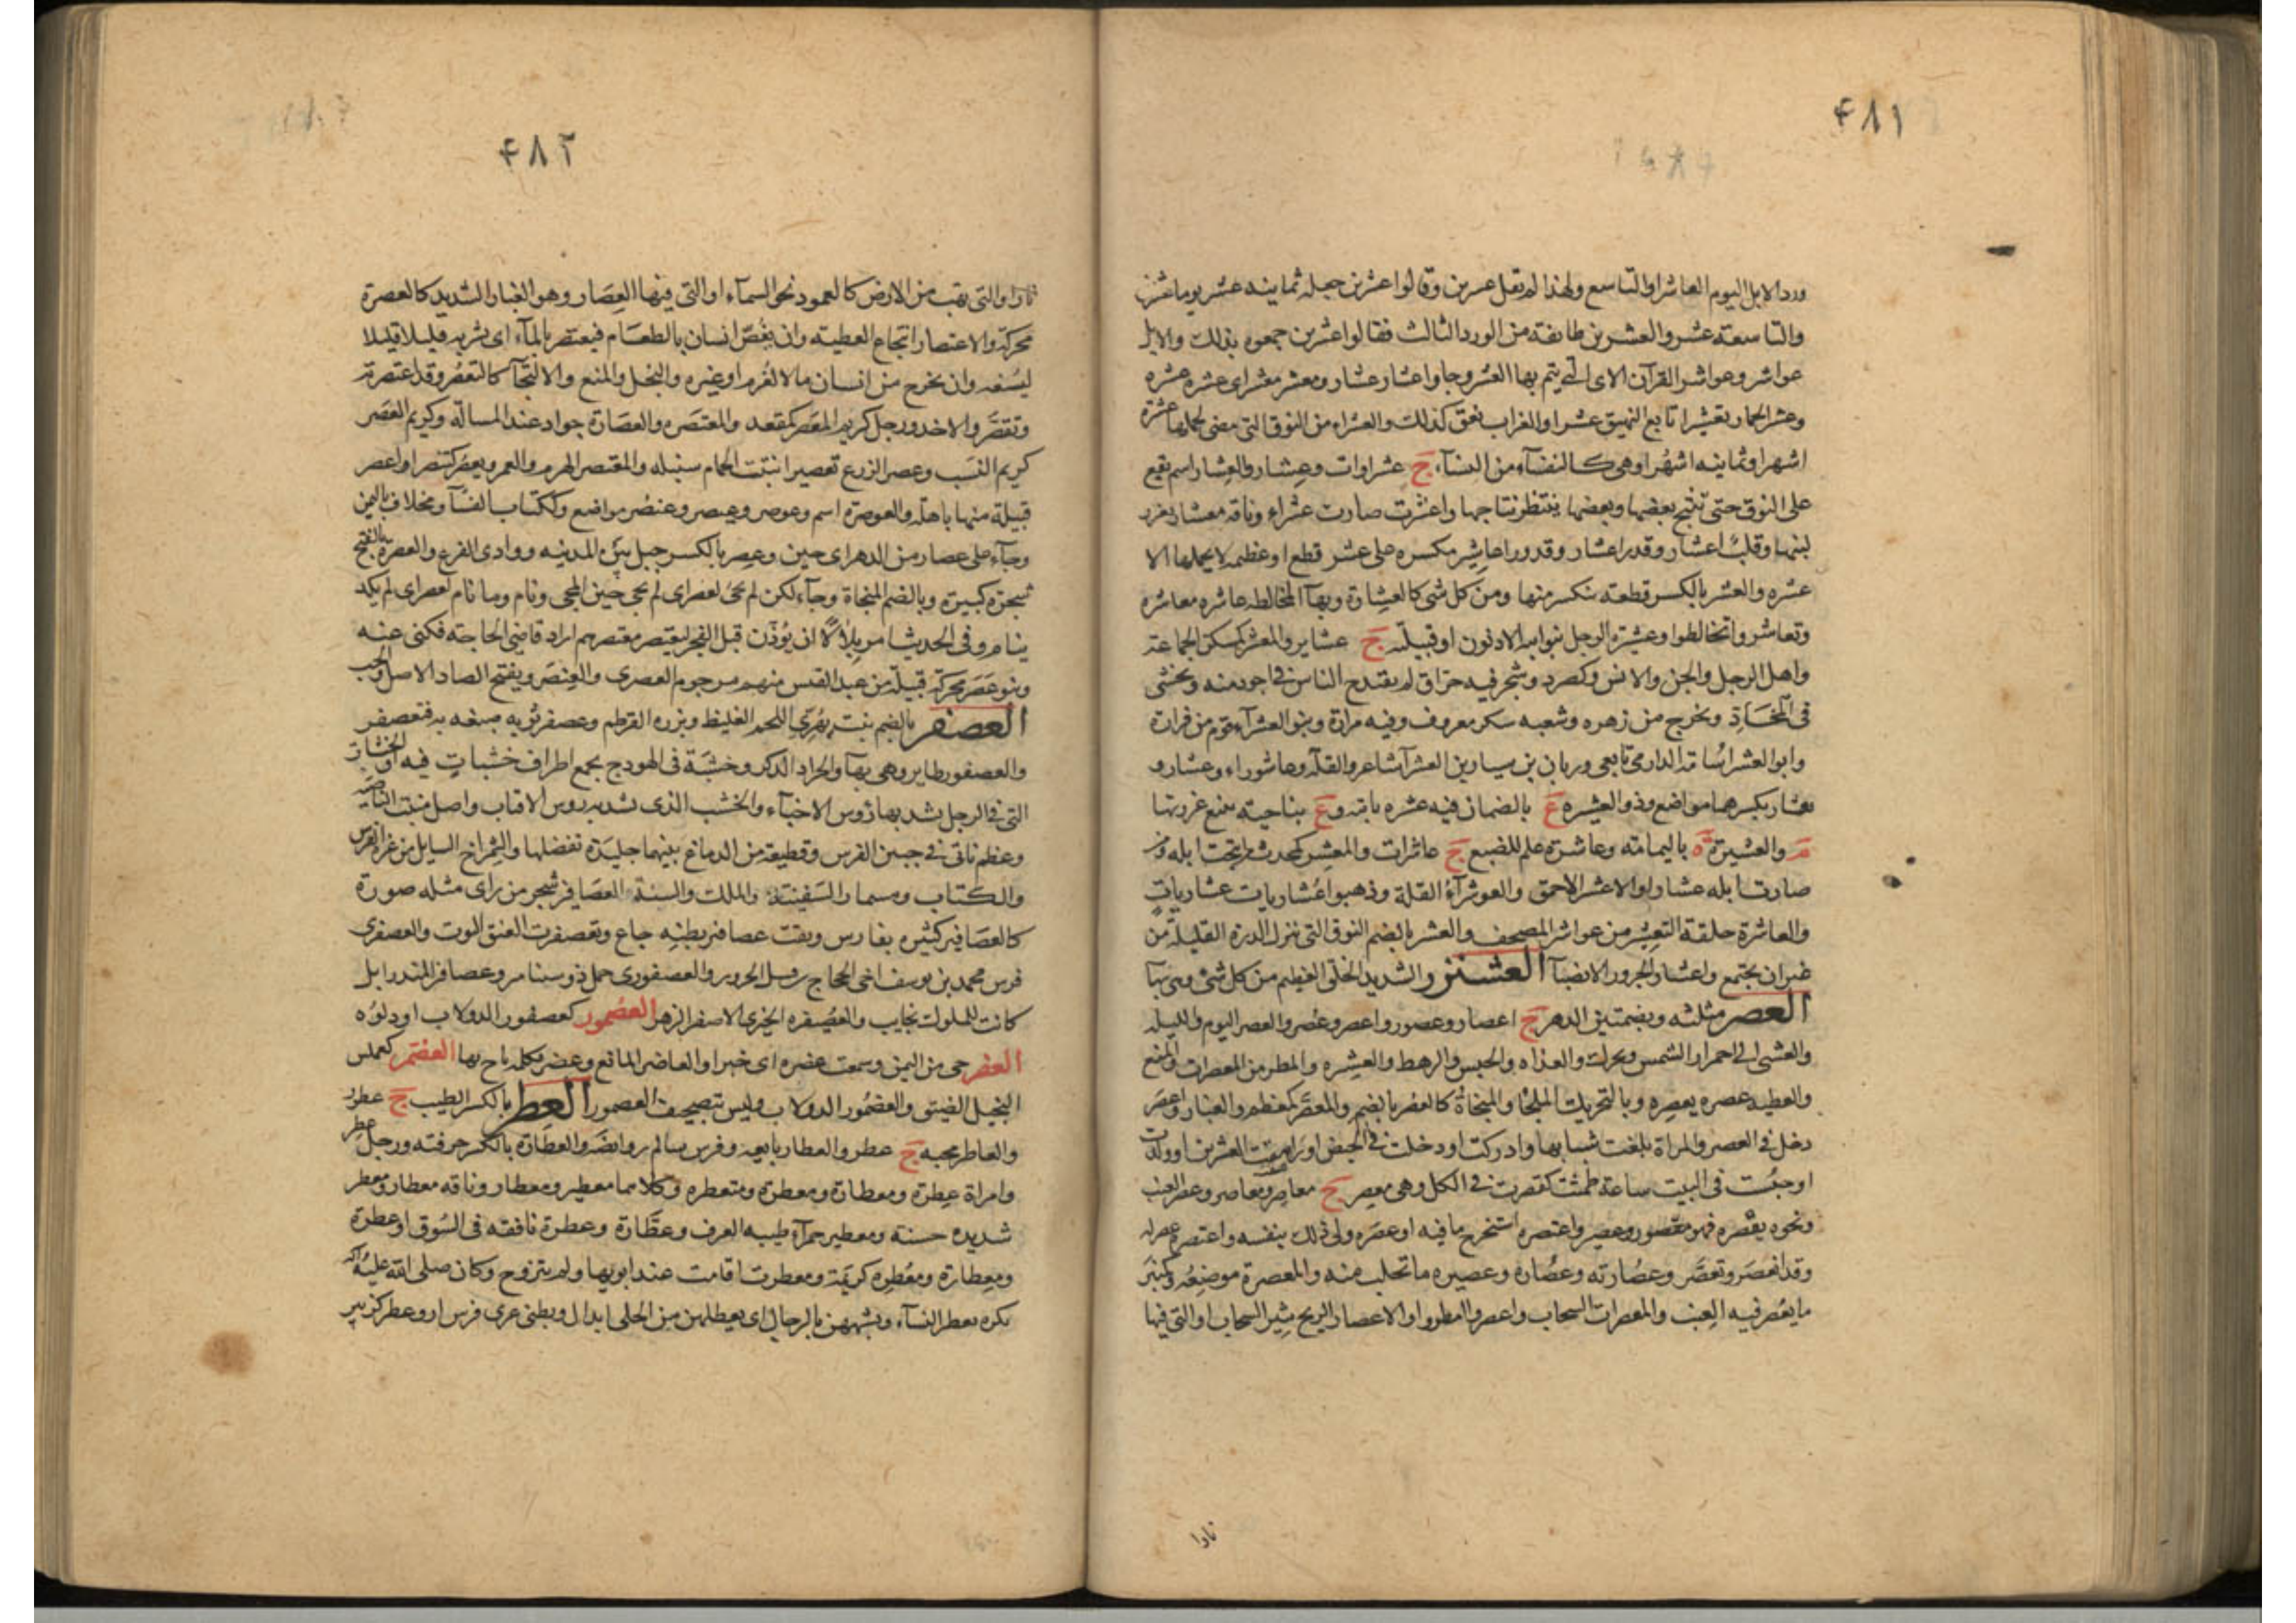 ۴۸۱
ورد الابل اليوم العاشر او التاسع ولهذا لم يقل عشرين وقالوا عشرين جعله ثمانيه عشر يوما عشرين
والتاسعة عشر والعشرين طائفة من الورد الثالث فقالوا عشرين جمعوه بذلك والابل
عواشر وعواشر القرآن الاى التى يتم بها العشر وجاوا عشار عشار ومعشر معشر اى عشره عشره
وعشر الحمار تعشيرا تابع النهيق عشرا والغراب نعق كذلك والعشراء من النوق التى مضى لحملها عشرة
اشهر او ثمانيه اشهر او هى كالنفساء من النساء ج عشراوات وعشار والعشار اسم يقع
على النوق حتى تنتج بعضها وبعضها ينتظر نتاجها واعشرت صارت عشراء وناقه معشار يغزر
لبنها وقلب اعشار وقدر اعشار وقدور اعاشير مكسره على عشر قطع او عظيمه لا يحملها الا
عشره والعشر بالكسر قطعة تنكسر منها ومن كل شى كالعشارة وبهاء المخالطه عاشره معاشره
وتعاشروا تخالطوا وعشيرة الرجل بنو ابيه الادنون او قبيلته ج عشاير والمعشر كمسكن الجماعة
واهل الرجل والجن والانس وكصرد شجر فيه حراق لم يقتدح الناس فى اجود منه ويحشى
فى المخاد ويخرج من زهره وشعبه سكر معروف وفيه مرارة وبنو العشراء قوم من فزارة
وابو العشراء اسامة الدارمى تابعى وزبان بن سيار بن العشراء شاعر والقلة وعاشوراء وعشارو
تعشار بكسرهما مواضع وذو العشيره ع بالصمان فيه عشره نابتة وع بناحيته ينبع غزوتها
م والعشيرة ة باليمامة وعاشرة علم للضبع ج عاشرات والمعشر كمحدث من نتجت ابله ومن
صارت ابله عشارا والاعشر الاحمق والعويشراء القلة وذهبوا عشاريات عشاريات
والعاشرة حلقة التعشير من عواشر المصحف والعشر بالضم النوق التى تنزل الدرة القليلة من
غير ان تجتمع واعشار الجزور الانصباء العشنزر الشديد الخلق العظيم من كل شئ وهى بهاء
العصر مثلثه وبضمتين الدهر ج اعصار وعصور واعصر وعصر والعصر اليوم والليله
والعشى الى احمرار الشمس ويحرك والغداه والحبس والرهط والعشيره والمطر من المعصرات والمنع
والعطيه عصره يعصره وبالتحريك الملجا والمنجاة كالعصر بالضم والمعصر كمعظم والغبار واعصر
دخل فى العصر والمراة بلغت شبابها وادركت او دخلت فى الحيض او راهقت العشرين او ولدت
او حبست فى البيت ساعة طمثت كعصرت فى الكل وهى معصر ج معاصر ومعاصير وعصر العنب
ونحوه يعصره فهو معصور وعصير واعتصره استخرج ما فيه او عصره ولى ذلك بنفسه واعتصره عصر له
وقد انعصر وتعصر وعصارته وعصاره وعصيره ما تحلب منه والمعصرة موضعه وكمنبر
ما يعصر فيه العنب والمعصرات السحاب واعصروا امطروا والاعصار الريح تثير السحاب او التى فيها
نارا
۴۸۲
نار او التى تهب من الارض كالعمود نحو السماء او التى فيها العصار وهو الغبار الشديد كالعصرة
محركة والاعتصار انتجاع العطية وان يغص انسان بالطعام فيعتصر بالماء اى يشربه قليلا قليلا
ليسيغه وان يخرج من انسان مالا لغرم او غيره والبخل والمنع والالتجا كالتعصر وقد اعتصرته
وتعصر والاخذ ورجل كريم المعصر كمقعد والمعتصر والعصارة جواد عند المسالة وكريم العصر
كريم النسب وعصر الزرع تعصيرا نبتت اكمام سنبله والمعتصر الهرم والعمر ويعصر كينصر او اعصر
قبيلة منها باهله والعوصره اسم وعوصر وعيصر وعنصر مواضع وككتاب الفسا ومخلاف باليمن
وجاء على عصار من الدهر اى حين وعصر بالكسر جبل بين المدينه ووادى الفرع والعصرة بالفتح
شجره كبيره وبالضم المنجاة وجاء لكن لم يجئ لعصر اى لم يجئ حين المجى ونام وما نام لعصر اى لم يكد
ينام وفى الحديث امر بلالا ان يؤذن قبل الفجر ليعتصر معتصرهم اراد قاضى الحاجة فكنى عنه
وبنو عصر محركة قبيلة من عبد القيس منهم مرجوم العصرى والعنصر ويفتح الصاد الاصل والحسب
العصفر بالضم نبت يهرى اللحم الغليظ وبزره القرطم وعصفر ثوبه صبغه به فتعصفر
والعصفور طاير وهى بهاء والجراد الذكر وخشبة فى الهودج يجمع اطراف خشبات فيه او الخشبات
التى فى الرحل يشد بها رؤس الاحناء والخشب الذى تشد به رؤس الاقتاب واصل منبت الناصية
وعظم ناتى فى جبين الفرس وقطيعة من الدماغ بينهما جليدة تفصلها والشمراخ السايل من غرة الفرس
والكتاب ومسمار السفينة والملك والسيد والعصافر شجر من راى مثله صورة
كالعصافير كثيره بفارس ونقت عصافير بطنه جاع وتعصفرت العنق التوت والعصفرى
فرس محمد بن يوسف اخى الحجاج من نسل الحرون والعصفورى جمل ذو سنامين وعصافير المنذر ابل
كانت للملوك نجايب والعصيفره الخيرى الاصفر الزهر العضمور كعصفور الدولاب او دلوه
العضر حى من اليمن وسمعت عضره اى خبرا والعاضر المانع وعضر بكلمه باح بها العضمر كعملس
البخيل الضيق والعضمور الدولاب وليس بتصحيف العصمور العطر بالكسر الطيب ج عطور
والعاطر محبه ج عطر والعطار بايعه وفرس سالم بن وابصة والعطارة بالكسر حرفته ورجل عطر
وامراة عطرة ومعطارة ومعطرة ومتعطره وكلاهما معطير ومعطار وناقه معطار ومعطر
شديده حسنة ومعطير حمراء طيبه العرف وعطارة وعطرة نافقه فى السوق او عطرة
ومعطارة ومعطره كريمة ومعطرت اقامت عند ابويها ولم تتزوج وكان صلى الله عليه واله
يكره تعطر النساء وتشبههن بالرجال اى تعطلهن من الحلى ابدال وبطنى عرى فرس ار وعطر كزبير